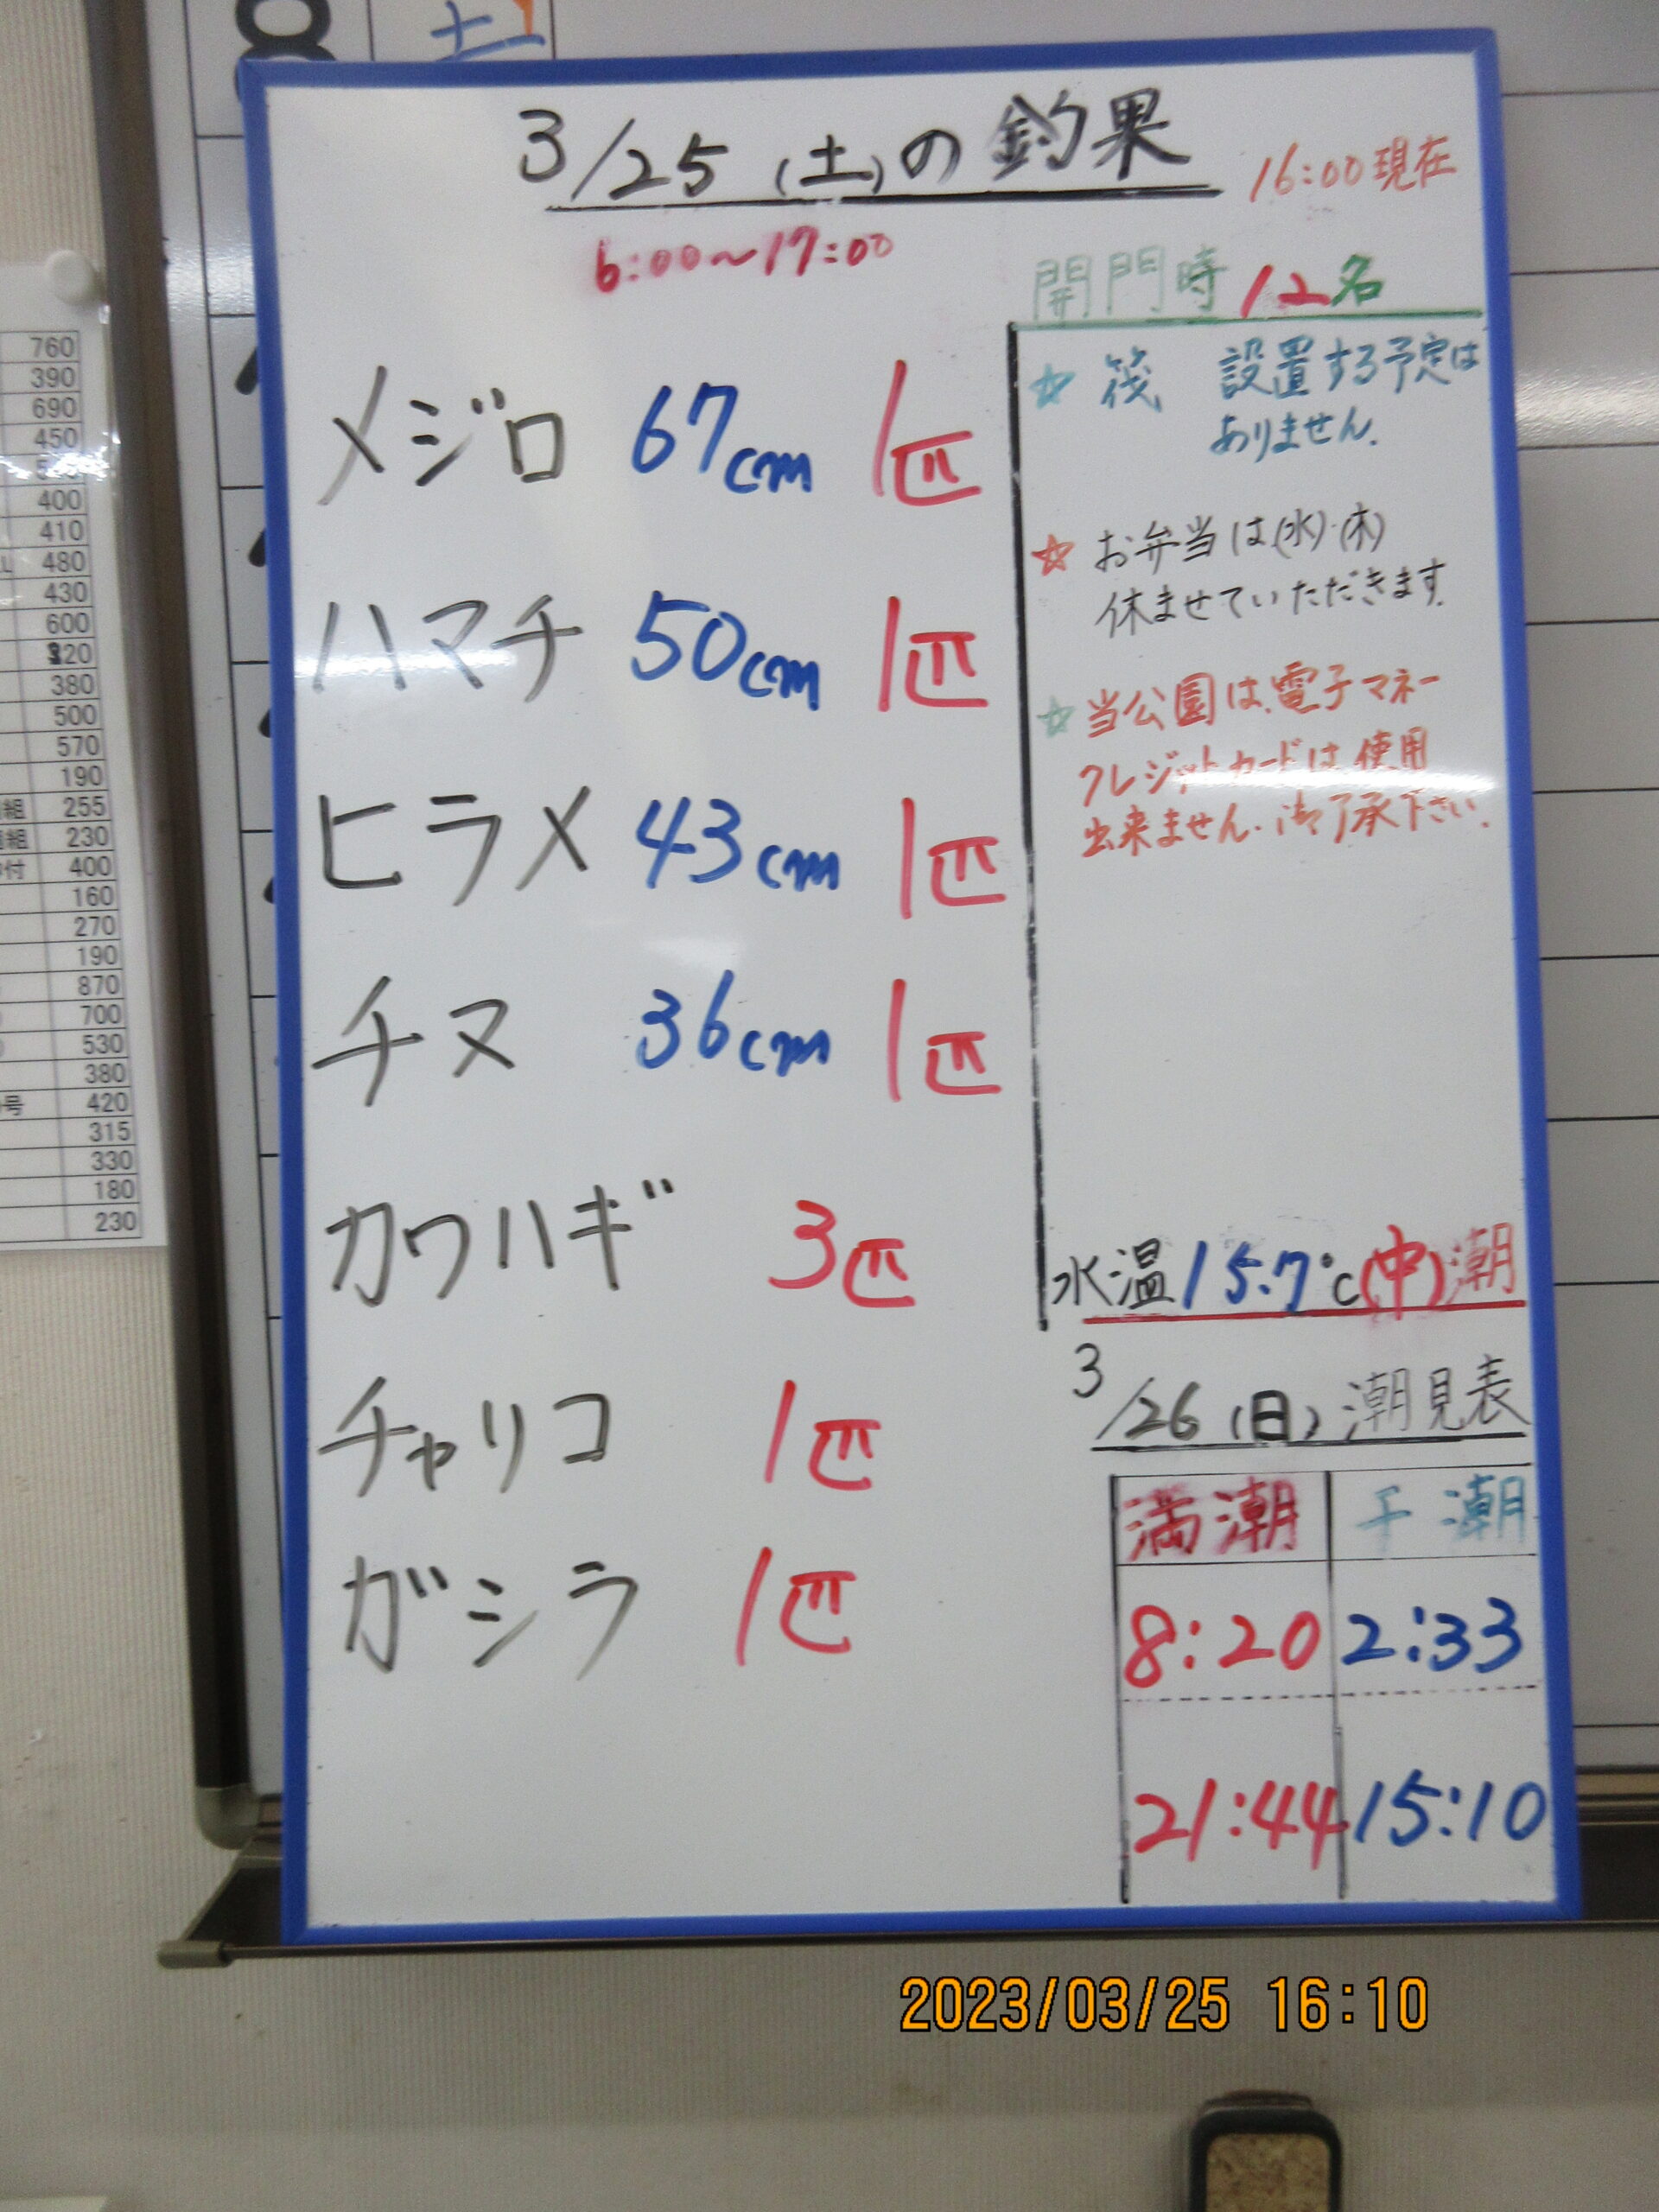 土
3/25(土)の釣果
16:00現在
6:00～17:00
開門時 12名
メジロ 67cm 1匹
ハマチ 50cm 1匹
ヒラメ 43cm 1匹
チヌ 36cm 1匹
カワハギ 3匹
チャリコ 1匹
ガシラ 1匹
☆ 筏 設置する予定は
ありません.
☆ お弁当は(水)・(木)
休ませていただきます.
☆ 当公園は、電子マネー
クレジットカードは、使用
出来ません. 御了承下さい.
水温15.7℃(中)潮
3/26(日)潮見表
満潮 干潮
8:20 2:33
21:44 15:10
760
390
690
450
400
410
480
430
600
320
380
500
570
190
組 255
組 230
付 400
160
270
190
870
700
530
380
号 420
315
330
180
230
2023/03/25 16:10